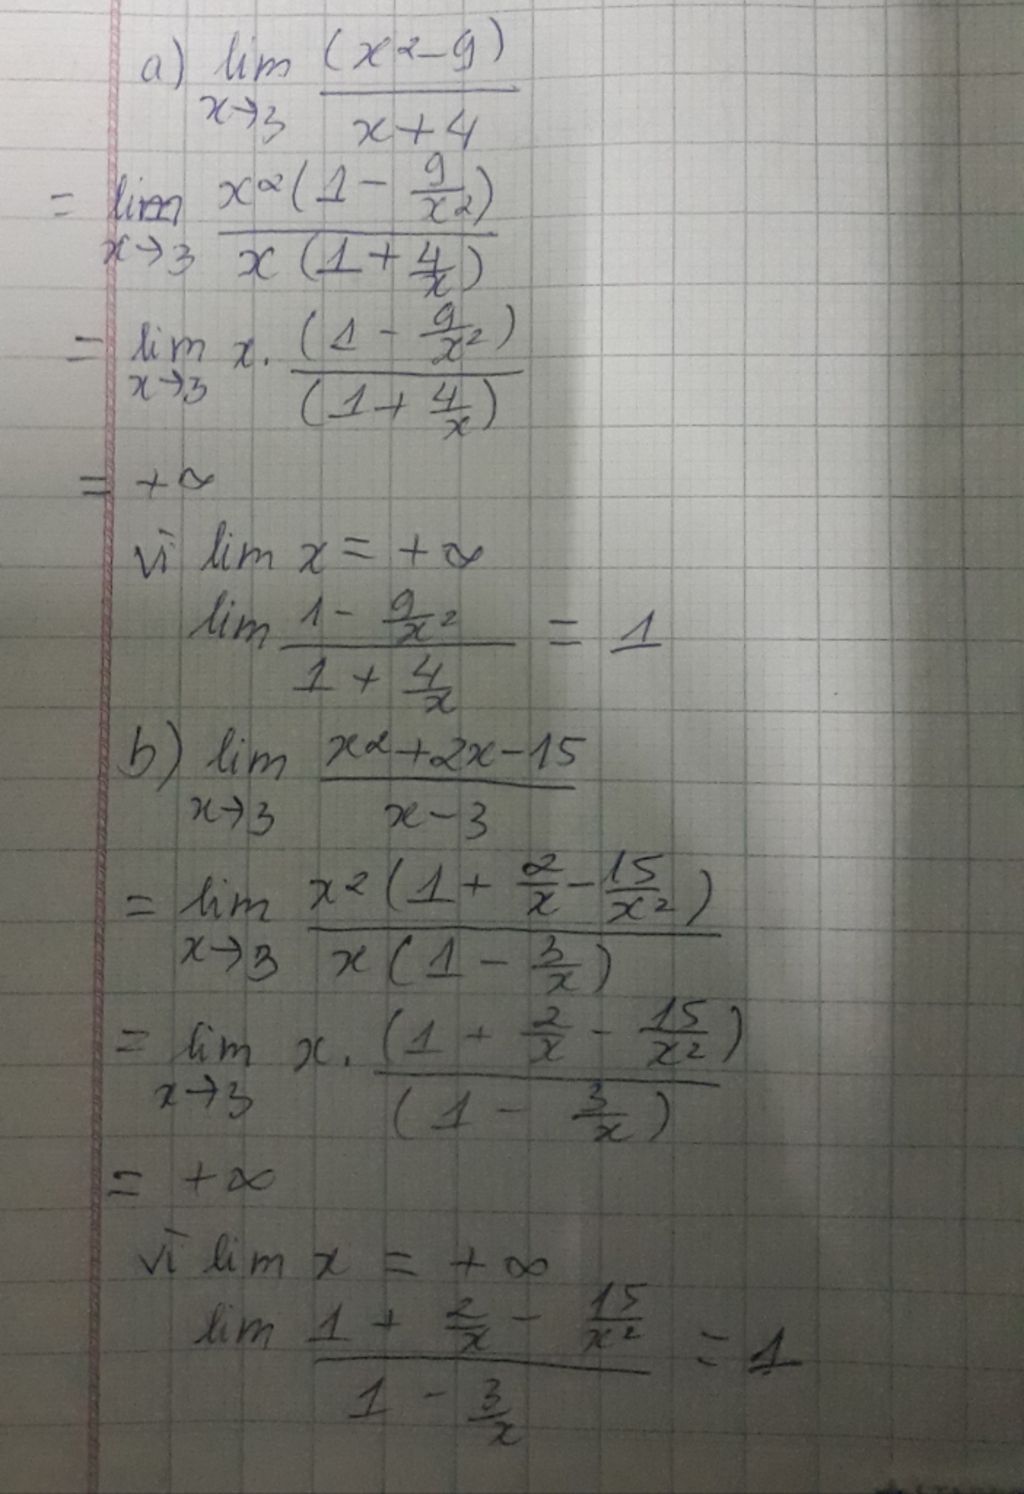 a) lim x→3 (x²-9) / x+4
= lim x→3 x²(1 - 9/x²) / x(1 + 4/x)
= lim x→3 x. (1 - 9/x²) / (1 + 4/x)
= +∞
vì lim x = +∞
lim 1 - 9/x² / 1 + 4/x = 1
b) lim x→3 x²+2x-15 / x-3
= lim x→3 x²(1 + 2/x - 15/x²) / x(1 - 3/x)
= lim x→3 x. (1 + 2/x - 15/x²) / (1 - 3/x)
= +∞
vì lim x = +∞
lim 1 + 2/x - 15/x² / 1 - 3/x = 1